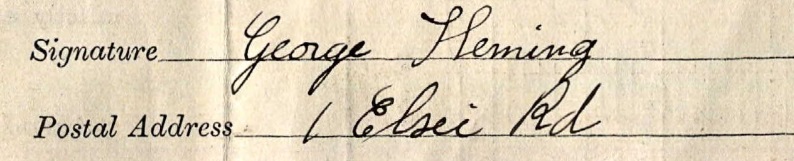 Signature George Fleming
Postal Address 1 Elsei Rd